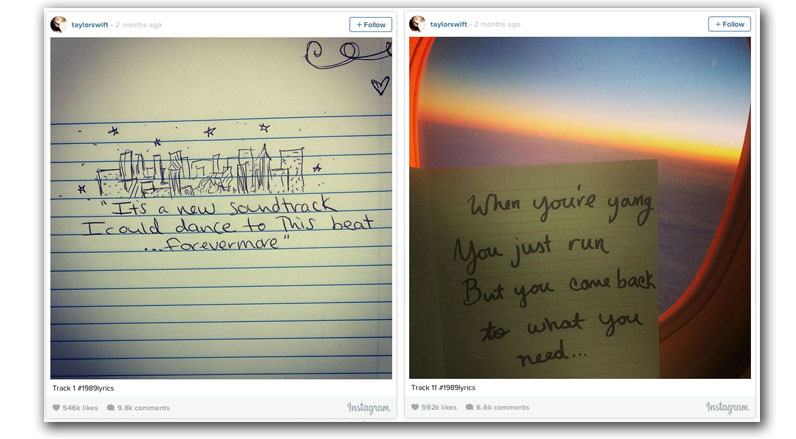 taylorswift - 2 months ago
+ Follow
"It's a new soundtrack
I could dance to This beat
...forevermore"
Track 1 #1989lyrics
546k likes 9.8k comments Instagram
taylorswift - 2 months ago
+ Follow
When you're young
You just run
But you come back
to what you
need...
Track 11 #1989lyrics
592k likes 6.6k comments Instagram